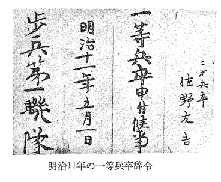 二大六年
佐野文吉
一等兵卒申付候事
明治十一年五月一日
歩兵第一聯隊
明治11年の一等兵卒辞令